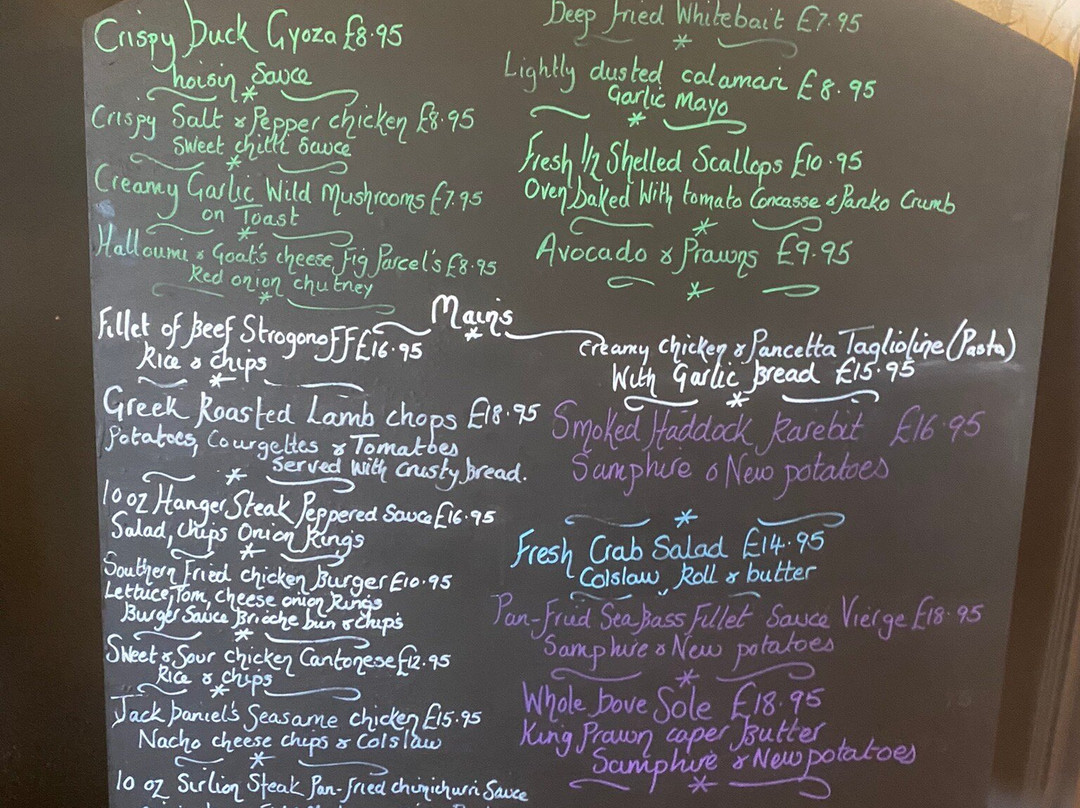 Crispy Duck Gyoza £8.95
hoisin Sauce
Crispy Salt & Pepper chicken £8.95
Sweet chilli Sauce
Creamy Garlic Wild Mushrooms £7.95
on Toast
Halloumi & Goat's cheese Fig Parcel's £8.95
Red onion chutney
Deep fried Whitebait £7.95
Lightly dusted calamari £8.95
Garlic Mayo
Fresh 1/2 Shelled Scallops £10.95
Oven baked With tomato Concasse & Panko Crumb
Avocado & Prawns £9.95
Mains
Fillet of Beef Strogonoff £16.95
Rice & chips
Greek Roasted Lamb chops £18.95
Potatoes, Courgettes & Tomatoes
Served With Crusty bread.
10 oz Hanger Steak Peppered Sauce £16.95
Salad, Chips Onion Rings
Southern Fried chicken Burger £10.95
Lettuce, Tom, cheese onion Rings
Burger Sauce Brioche bun & chips
Sweet & Sour chicken Cantonese £12.95
Rice & chips
Jack Daniel's Seasame chicken £15.95
Nacho cheese chips & Colslaw
10 oz Sirlion Steak Pan-fried chimichurri Sauce
Creamy chicken & Pancetta Taglioline (Pasta)
With Garlic Bread £15.95
Smoked Haddock Rarebit £16.95
Samphire & New potatoes
Fresh Crab Salad £14.95
Colslaw, Roll & butter
Pan-Fried Sea Bass Fillet Sauce Vierge £18.95
Samphire & New potatoes
Whole Dove Sole £18.95
King Prawn caper Butter
Samphire & New potatoes